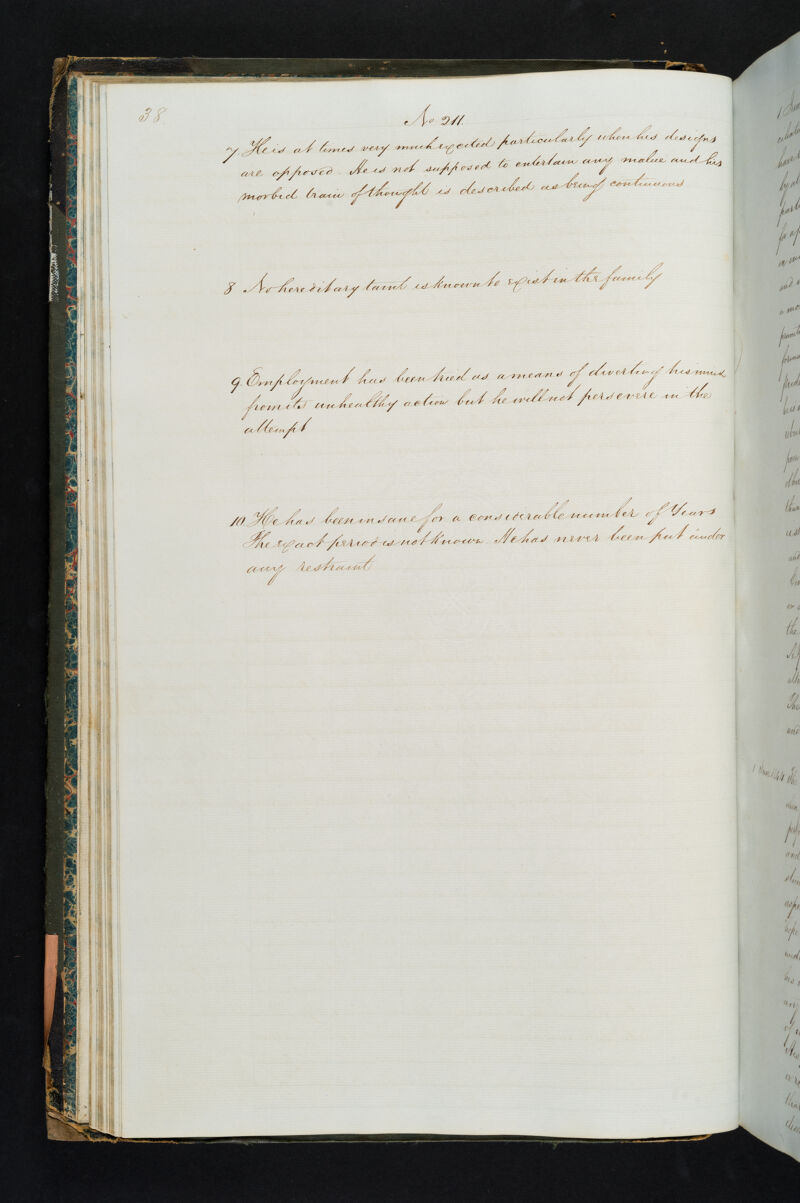 38
No 211.
7 He is at times very much excited particularly when his designs
are opposed. He is not supposed to entertain any malice and his
morbid train of thought is described as being continuous
8 No hereditary taint is known to exist in the family
9 Employment has been tried as a means of diverting his mind
from its unhealthy action but he will not persevere in the
attempt
10 He has been insane for a considerable number of Years
The exact period is not known. He has never been put under
any restraint